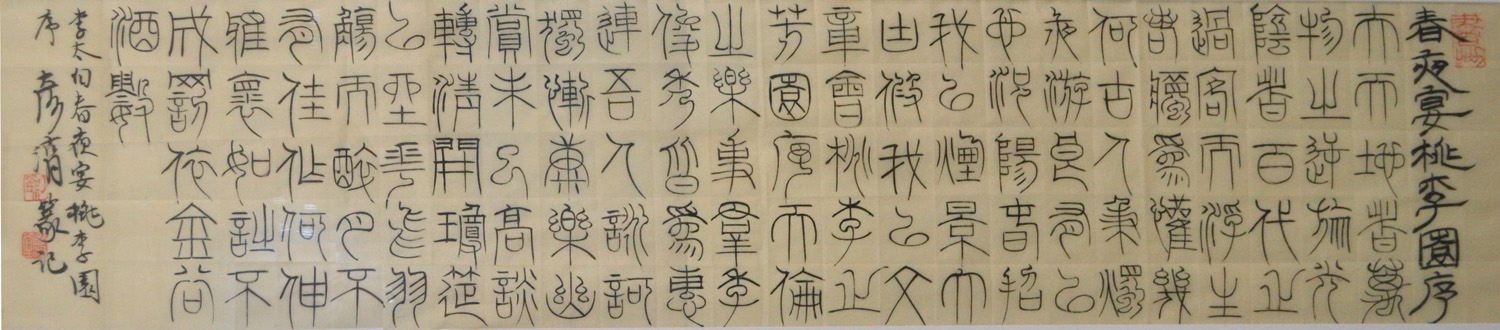 春夜宴桃李園序
夫天地者萬
物之逆旅光
陰者百代之
過客而浮生
若夢為歡幾
何古人秉燭
夜游良有以
也況陽春召
我以煙景大
塊假我以文
章會桃李之
芳園序天倫
之樂事羣季
俊秀皆為惠
連吾人詠歌
獨慚康樂幽
賞未已高談
轉清開瓊筵
以坐花飛羽
觴而醉月不
有佳作何伸
雅懷如詩不
成罰依金谷
酒數
李太白春夜宴桃李園
序 彥篆記